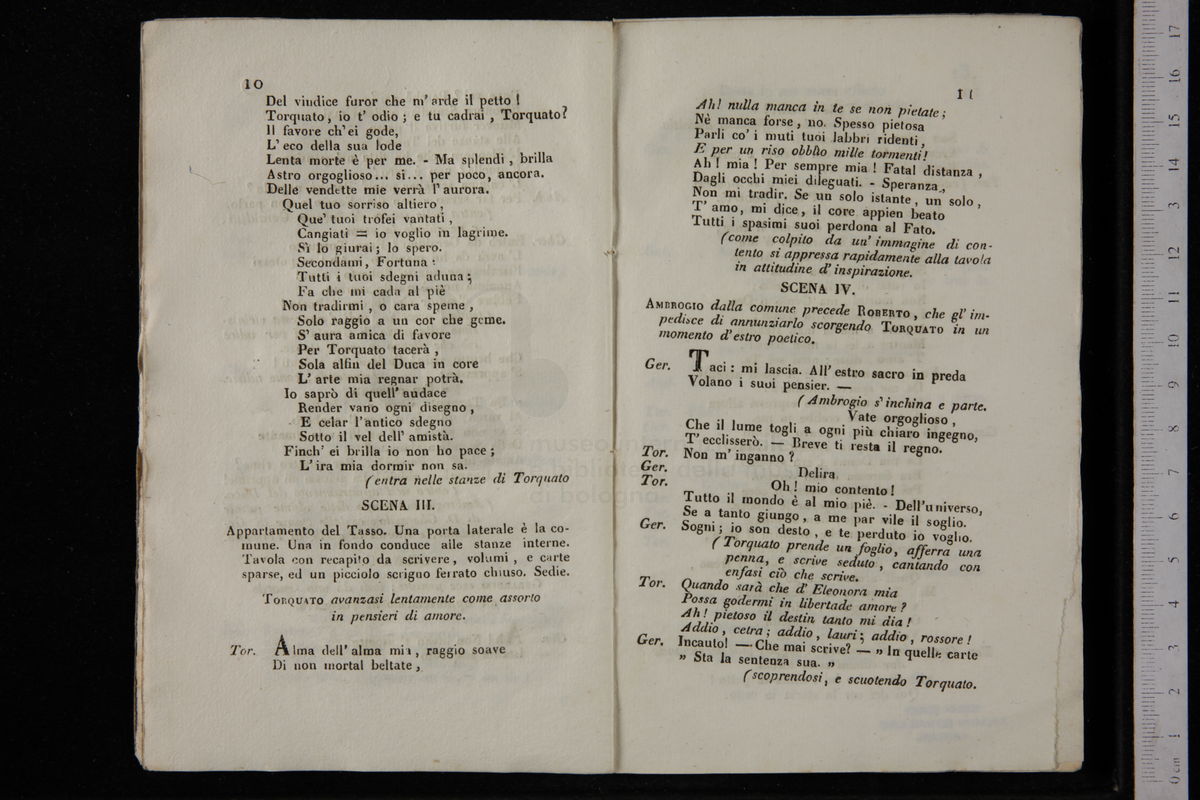 10
Del vindice furor che m' arde il petto !
Torquato, io t' odio ; e tu cadrai , Torquato?
Il favore ch' ei gode,
L' eco della sua lode
Lenta morte è per me. - Ma splendi , brilla
Astro orgoglioso... sì... per poco, ancora.
Delle vendette mie verrà l' aurora.
Quel tuo sorriso altiero ,
Que' tuoi trofei vantati ,
Cangiati = io voglio in lagrime.
Sì lo giurai ; lo spero.
Secondami, Fortuna :
Tutti i tuoi sdegni aduna ;
Fa che mi cada al piè
Non tradirmi , o cara speme ,
Solo raggio a un cor che geme.
S' aura amica di favore
Per Torquato tacerà ,
Sola alfin del Duca in core
L' arte mia regnar potrà.
Io saprò di quell' audace
Render vano ogni disegno ,
E celar l' antico sdegno
Sotto il vel dell' amistà.
Finch' ei brilla io non ho pace ;
L' ira mia dormir non sa.
(entra nelle stanze di Torquato
SCENA III.
Appartamento del Tasso. Una porta laterale è la co-
mune. Una in fondo conduce alle stanze interne.
Tavola con recapito da scrivere , volumi , e carte
sparse, ed un picciolo scrigno ferrato chiuso. Sedie.
TORQUATO avanzasi lentamente come assorto
in pensieri di amore.
Tor. Alma dell' alma mia , raggio soave
Di non mortal beltate ,
11
Ah! nulla manca in te se non pietate ;
Nè manca forse , no. Spesso pietosa
Parli co' i muti tuoi labbri ridenti ,
E per un riso obblìo mille tormenti !
Ah ! mia ! Per sempre mia ! Fatal distanza ,
Dagli occhi miei dileguati. - Speranza ,
Non mi tradir. Se un solo istante , un solo ,
T' amo, mi dice , il core appien beato
Tutti i spasimi suoi perdona al Fato.
(come colpito da un' immagine di con-
tento si appressa rapidamente alla tavola
in attitudine d' inspirazione.
SCENA IV.
AMBROGIO dalla comune precede ROBERTO , che gl' im-
pedisce di annunziarlo scorgendo TORQUATO in un
momento d' estro poetico.
Ger. Taci : mi lascia. All' estro sacro in preda
Volano i suoi pensier. —
(Ambrogio s' inchina e parte.
Vate orgoglioso ,
Che il lume togli a ogni più chiaro ingegno,
T' ecclisserò. — Breve ti resta il regno.
Tor. Non m' inganno ?
Ger. Delira.
Tor. Oh ! mio contento !
Tutto il mondo è al mio piè. - Dell' universo,
Se a tanto giungo , a me par vile il soglio.
Ger. Sogni ; io son desto , e te perduto io voglio.
(Torquato prende un foglio, afferra una
penna, e scrive seduto , cantando con
enfasi ciò che scrive.
Tor. Quando sarà che d' Eleonora mia
Possa godermi in libertade amore ?
Ah ! pietoso il destin tanto mi dia !
Addio , cetra ; addio , lauri ; addio , rossore !
Ger. Incauto! — Che mai scrive? — „ In quelle carte
„ Sta la sentenza sua. „
(scoprendosi, e scuotendo Torquato.